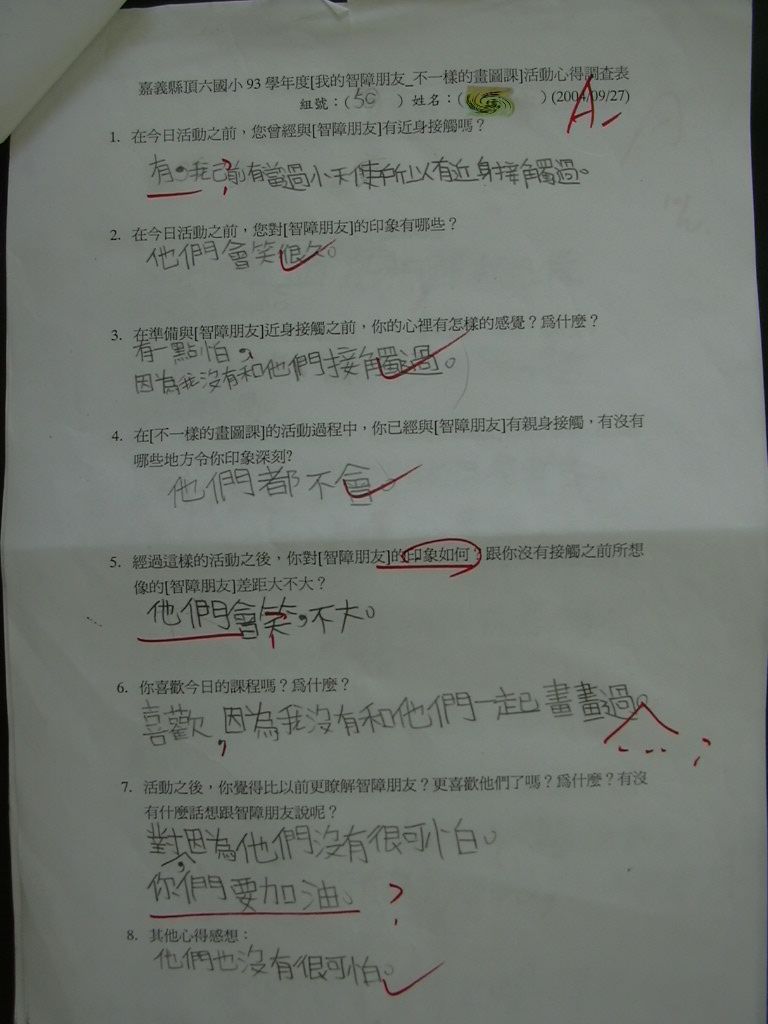 嘉義縣頂六國小 93 學年度[我的智障朋友_不一樣的畫圖課]活動心得調查表
組號：(50 ) 姓名：( ) (2004/09/27)
A-
1. 在今日活動之前，您曾經與[智障朋友]有近身接觸嗎？
有，我己前有當過小天使所以有近身接觸過。
2. 在今日活動之前，您對[智障朋友]的印象有哪些？
他們會笑很久。
3. 在準備與[智障朋友]近身接觸之前，你的心裡有怎樣的感覺？爲什麼？
有一點怕，
因為我沒有和他們接觸過。
4. 在[不一樣的畫圖課]的活動過程中，你已經與[智障朋友]有親身接觸，有沒有
哪些地方令你印象深刻?
他們都不會。
5. 經過這樣的活動之後，你對[智障朋友]的印象如何？跟你沒有接觸之前所想
像的[智障朋友]差距大不大？
他們會笑，不大。
?
6. 你喜歡今日的課程嗎？爲什麼？
喜歡，因為我沒有和他們一起畫畫過。
7. 活動之後，你覺得比以前更瞭解智障朋友？更喜歡他們了嗎？爲什麼？有沒
有什麼話想跟智障朋友說呢？
對，因為他們沒有很可怕。
你們要加油。 ?
8. 其他心得感想：
他們也沒有很可怕。